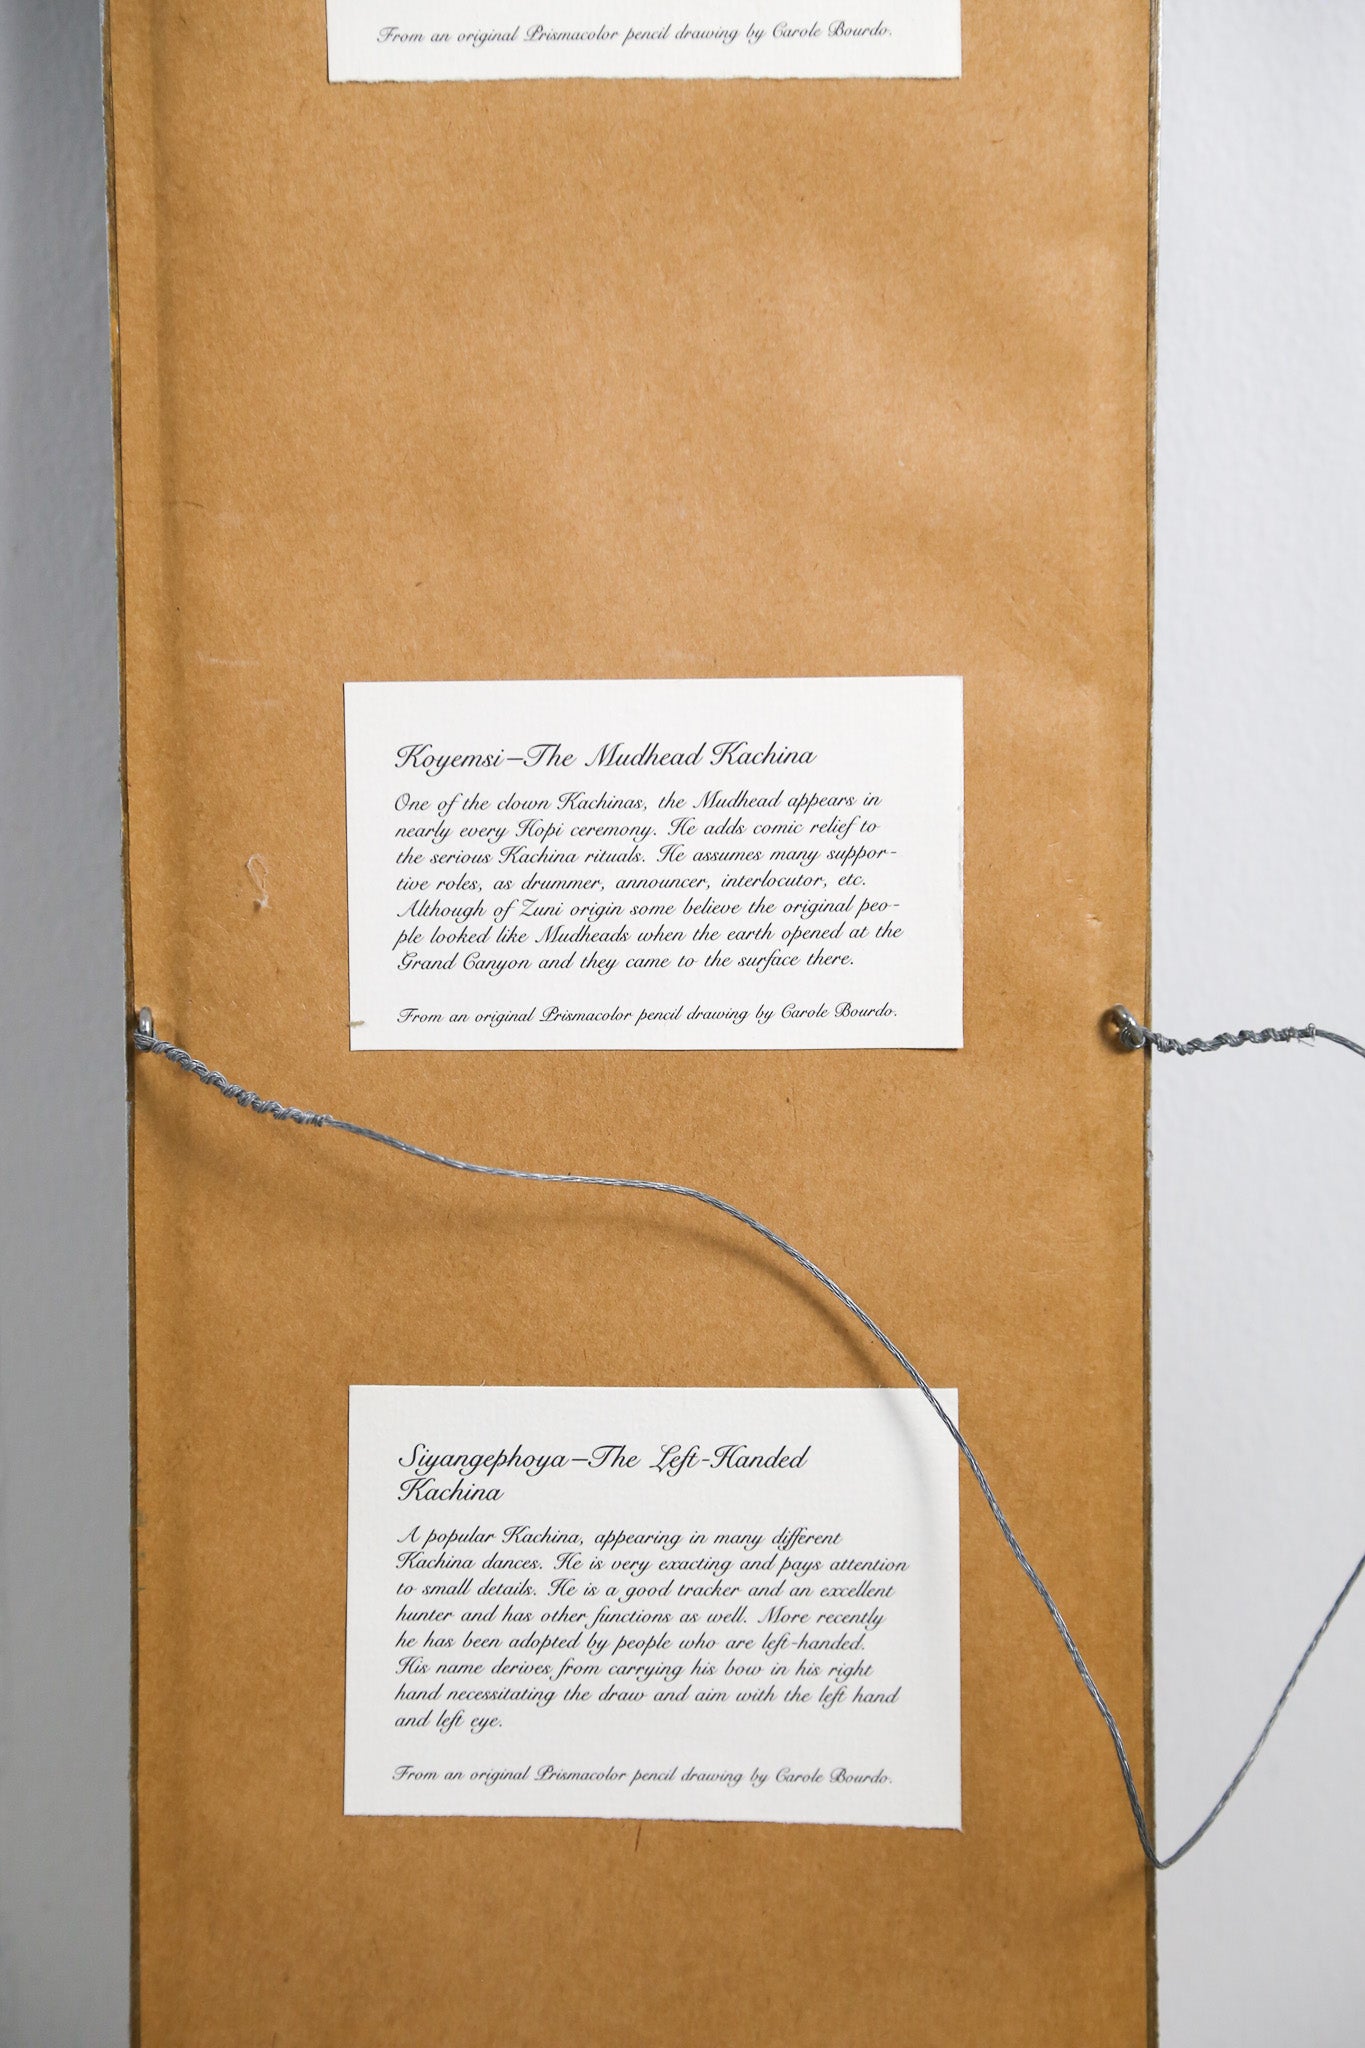 From an original Prismacolor pencil drawing by Carole Bourdo.
Koyemsi—The Mudhead Kachina
One of the clown Kachinas, the Mudhead appears in
nearly every Hopi ceremony. He adds comic relief to
the serious Kachina rituals. He assumes many suppor-
tive roles, as drummer, announcer, interlocutor, etc.
Although of Zuni origin some believe the original peo-
ple looked like Mudheads when the earth opened at the
Grand Canyon and they came to the surface there.
From an original Prismacolor pencil drawing by Carole Bourdo.
Siyangephoya—The Left-Handed
Kachina
A popular Kachina, appearing in many different
Kachina dances. He is very exacting and pays attention
to small details. He is a good tracker and an excellent
hunter and has other functions as well. More recently
he has been adopted by people who are left-handed.
His name derives from carrying his bow in his right
hand necessitating the draw and aim with the left hand
and left eye.
From an original Prismacolor pencil drawing by Carole Bourdo.